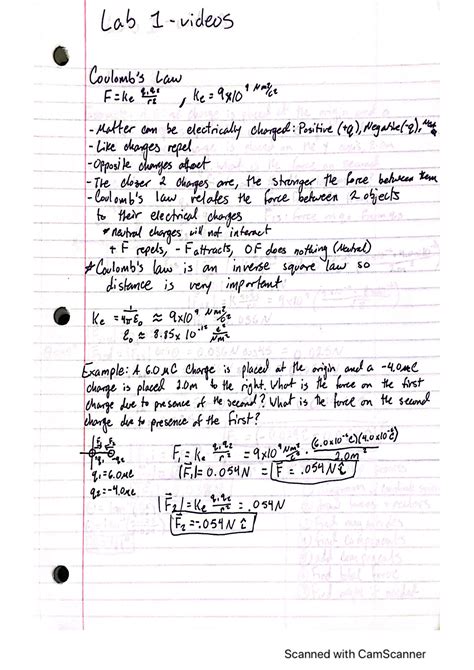 Lab 1 - videos
Coulomb's Law
F = Ke q₁q₂/r² , Ke = 9x10⁹ Nm²/C²
- Matter can be electrically charged: Positive (+q), Negative (-q),
- Like charges repel
- Opposite charges attract
- The closer 2 charges are, the stronger the force between them
- Coulomb's law relates the force between 2 objects
to their electrical charges
* neutral charges will not interact
+F repels, -F attracts, 0F does nothing (Neutral)
* Coulomb's law is an inverse square law so
distance is very important
Ke = 1/4πε₀ ≈ 9x10⁹ Nm²/C²
ε₀ ≈ 8.85x10⁻¹² C²/Nm²
Example: A 6.0μC charge is placed at the origin and a -4.0μC
charge is placed 2.0m to the right. What is the force on the first
charge due to presence of the second? What is the force on the second
charge due to presence of the first?
F₁ F₂
q₁ -q₂
F₁ = Ke q₁q₂/r² = 9x10⁹ Nm²/C² · (6.0x10⁻⁶C)(4.0x10⁻⁶C)/2.0m²
q₁ = 6.0μC
|F⃗₁| = 0.054N = F⃗ = .054N î
q₂ = -4.0μC
|F⃗₂| = Ke q₁q₂/r² = .054N
F⃗₂ = -.054N î
Scanned with CamScanner